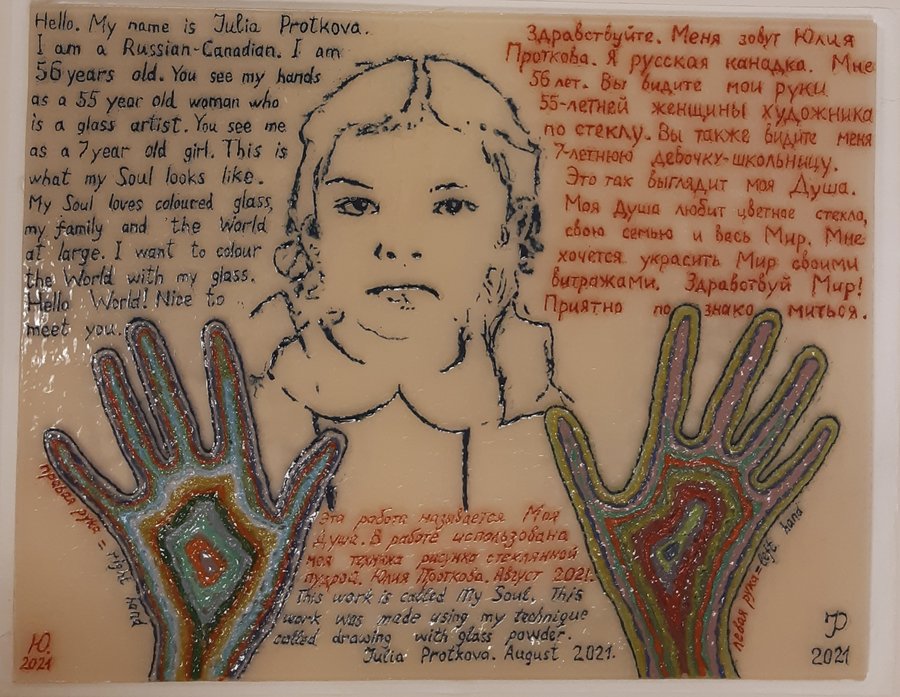 Hello. My name is Julia Protkova.
I am a Russian-Canadian. I am
56 years old. You see my hands
as a 55 year old woman who
is a glass artist. You see me
as a 7 year old girl. This is
what my Soul looks like.
My Soul loves coloured glass,
my family and the World
at large. I want to colour
the World with my glass.
Hello World! Nice to
meet you.
Здравствуйте. Меня зовут Юлия
Проткова. Я русская канадка. Мне
56 лет. Вы видите мои руки
55-летней женщины художника
по стеклу. Вы также видите меня
7-летнюю девочку-школьницу.
Это так выглядит моя Душа.
Моя Душа любит цветное стекло,
свою семью и весь Мир. Мне
хочется украсить Мир своими
витражами. Здравствуй Мир!
Приятно по знако миться.
правая рука = right hand
левая рука = left hand
Эта работа называется Моя
Душа. В работе использована
моя техника рисунка стеклянной
пудрой. Юлия Проткова. Август 2021.
This work is called My Soul. This
work was made using my technique
called drawing with glass powder.
Julia Protkova. August 2021.
Ю.
2021
JP
2021